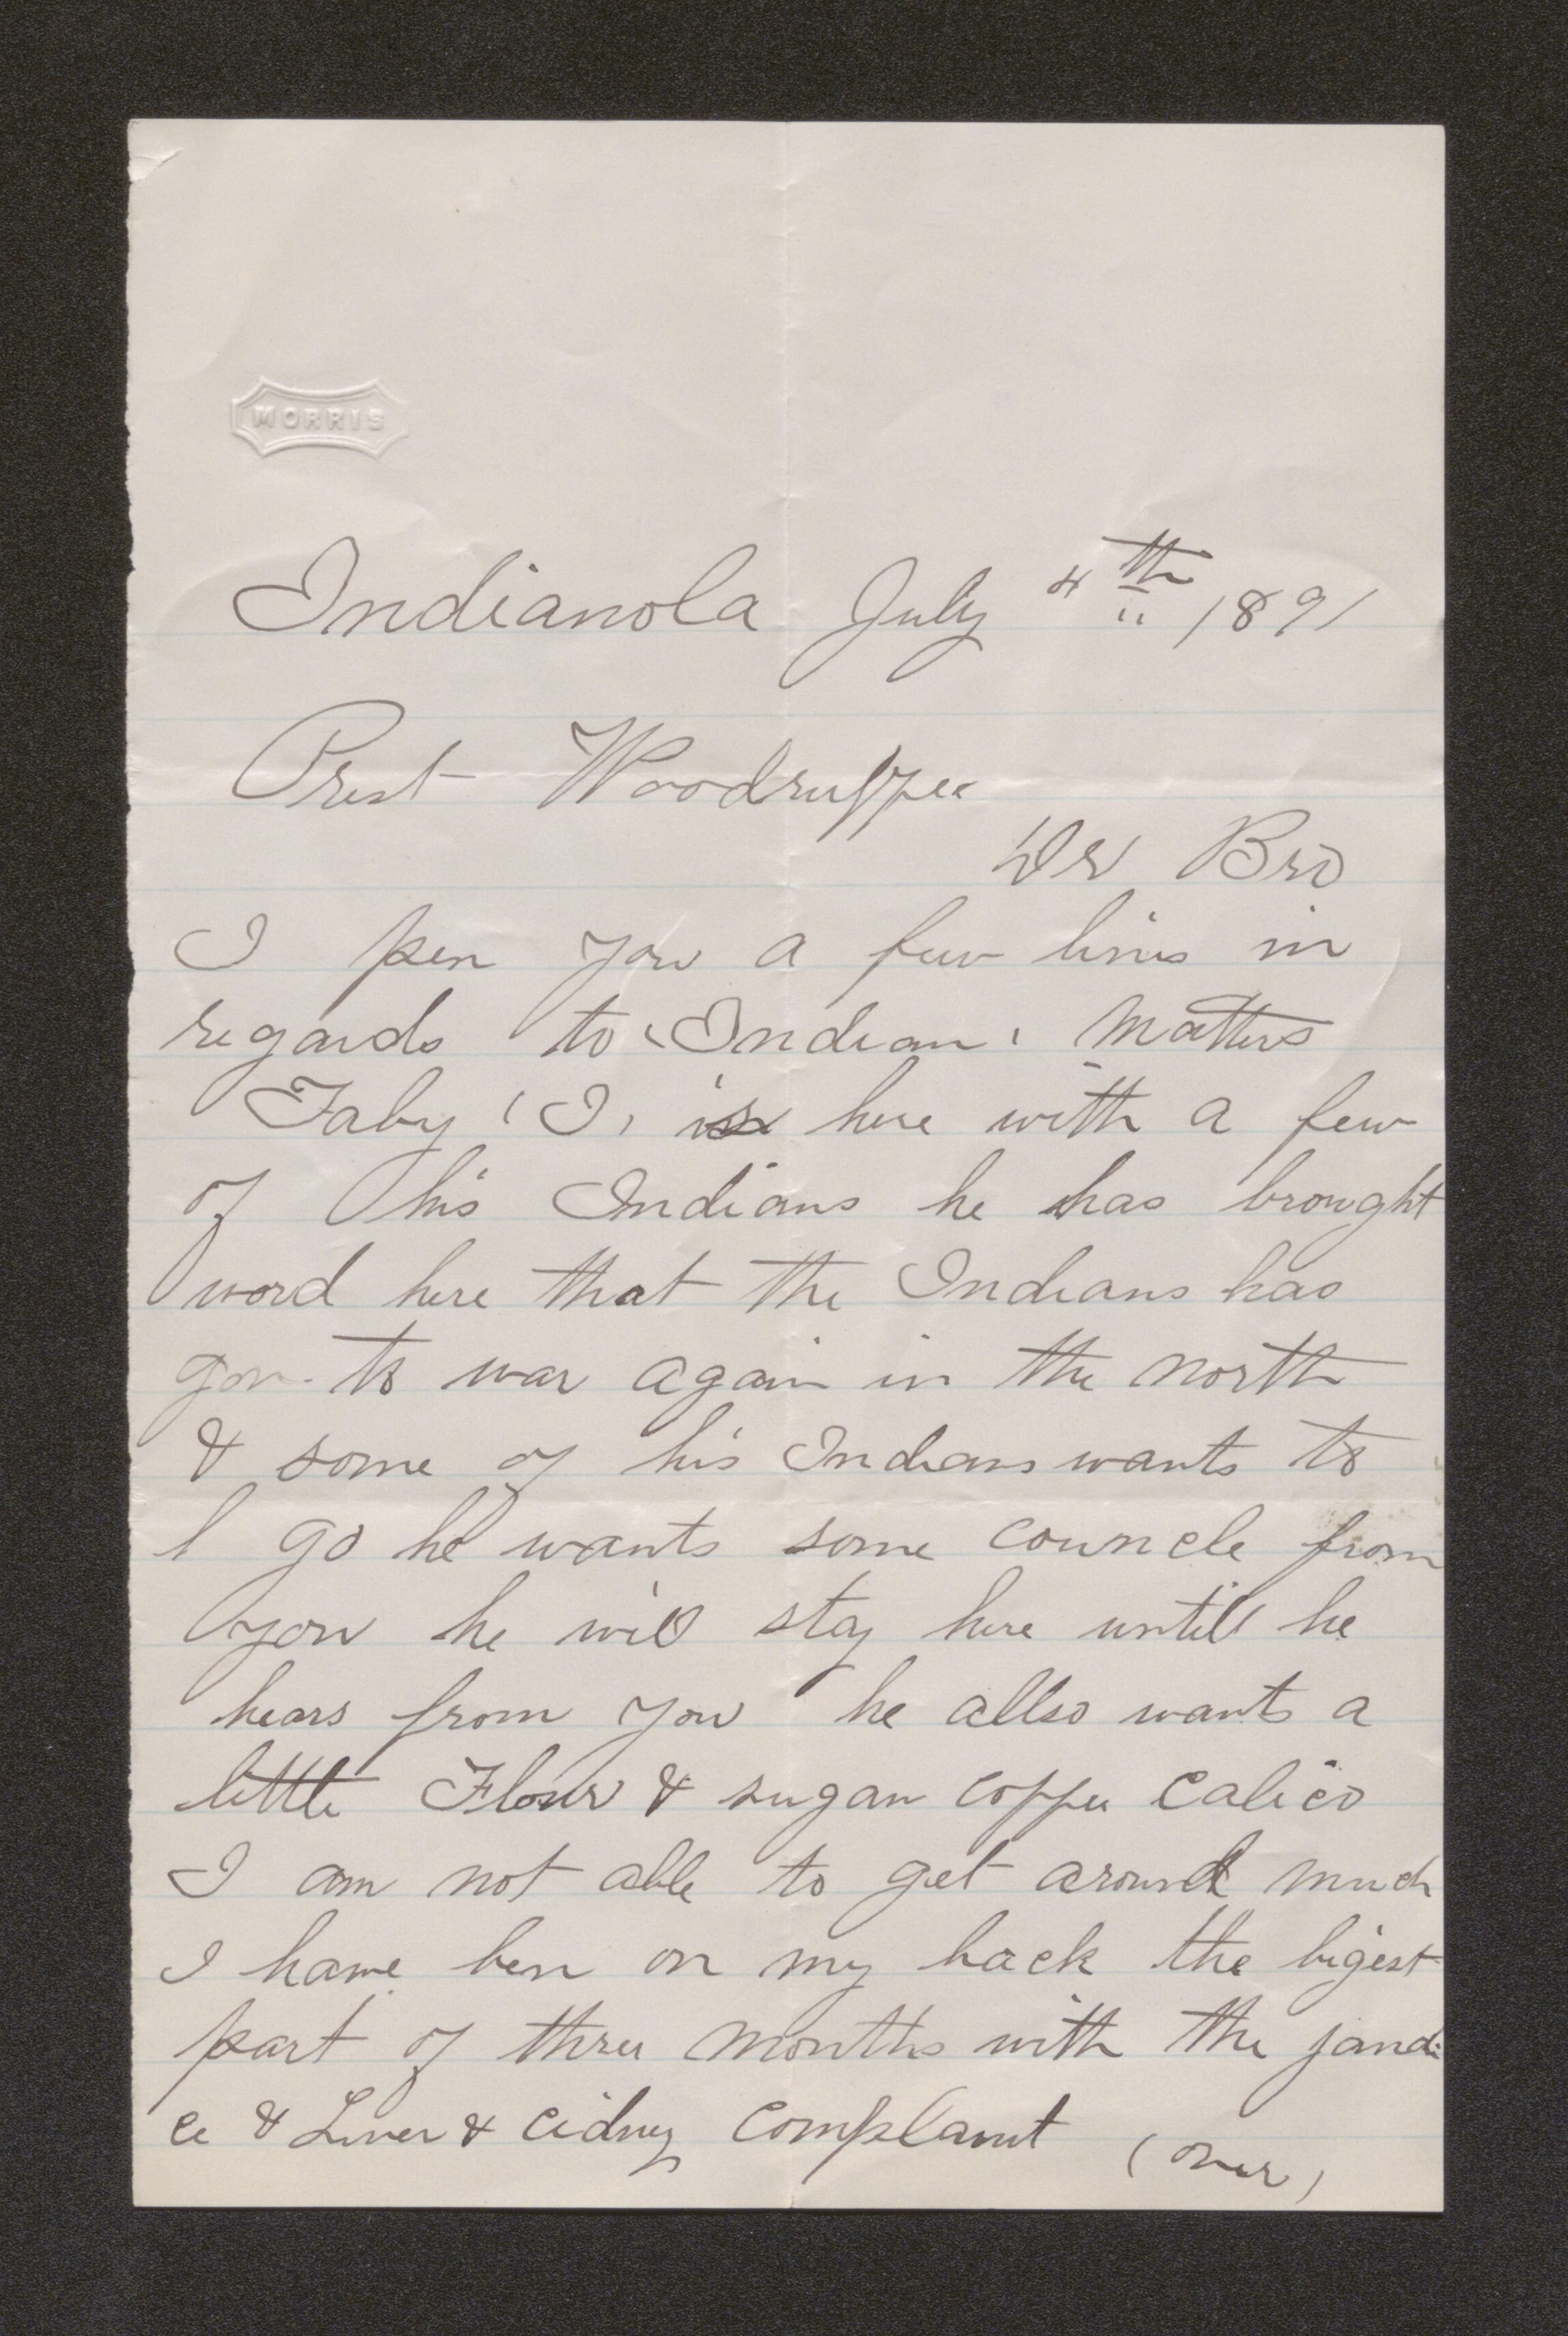 MORRIS
Indianola July 4th 1891
Prest Woodruffee
Dr Bro
I pen you a few lines in
regards to (Indian) Matters
Taby (I) is here with a few
of his Indians he has brought
word here that the Indians has
gon to war again in the north
& some of his Indians wants to
go he wants some councle from
you he will stay here untill he
hears from you he allso wants a
little Flour & sugar coffee Calico
I am not able to get around much
I have ben on my back the bigest
part of three months with the jandi
ce & Liver & cidney complaint (over)